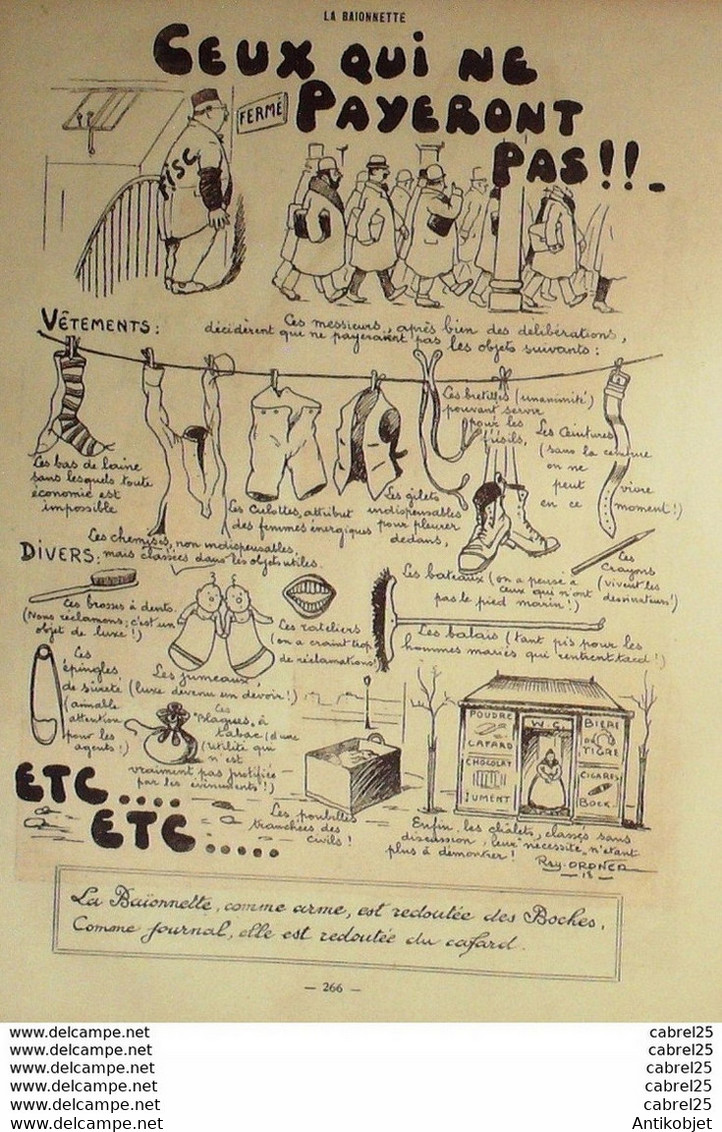 LA BAIONNETTE
CEUX QUI NE
PAYERONT
PAS!!_
FERMÉ
FISC
VÊTEMENTS:
Ces messieurs, après bien des délibérations,
décidèrent que ne payeraient pas les objets suivants:
Les bas de laine
sans lesquels toute
économie est
impossible
Les chemises, non indispensables,
mais classées dans les objets utiles.
Les Culottes, attribut
des femmes énergiques
Les gilets
indispensables
pour pleurer
dedans,
Les bretelles (unanimité)
pouvant servir
pour les
fusils,
Les Ceintures
(sans la ceinture
on ne
peut vivre
en ce moment!)
Les bateaux (on a pensé à
ceux qui n'ont
pas le pied marin!)
Les
Crayons
(vivent les
dessinateurs!)
DIVERS:
Les brosses à dents.
(Nous réclamons; c'est un
objet de luxe!)
Les jumeaux,
(luxe devenu un devoir!)
Les rateliers
(on a craint trop
de réclamations!)
Les balais (tant pis pour les
hommes mariés qui rentrent tard!)
Les
épingles
de sûreté
(aimable
attention
pour les
agents!)
Les
"Blagues" à
tabac (d'une
(utilité qui
n'est
vraiment pas justifiée
par les évènements!)
Les poubelles
tranchées des
civils!
POUDRE
CAFARD
CHOCOLAT
JUMENT
W.C.
BIÈRE
DU
TIGRE
CIGARES
BOCK.
Enfin, les châlets, classés sans
discussion, leur nécessité n'étant
plus à démontrer!
Ray. ORDNER
18
ETC....
ETC.....
La Baïonnette, comme arme, est redoutée des Boches.
Comme journal, elle est redoutée du cafard.
— 266 —
www.delcampe.net cabrel25
www.delcampe.net cabrel25
www.delcampe.net cabrel25
www.delcampe.net cabrel25
www.delcampe.net cabrel25
www.delcampe.net Antikobjet